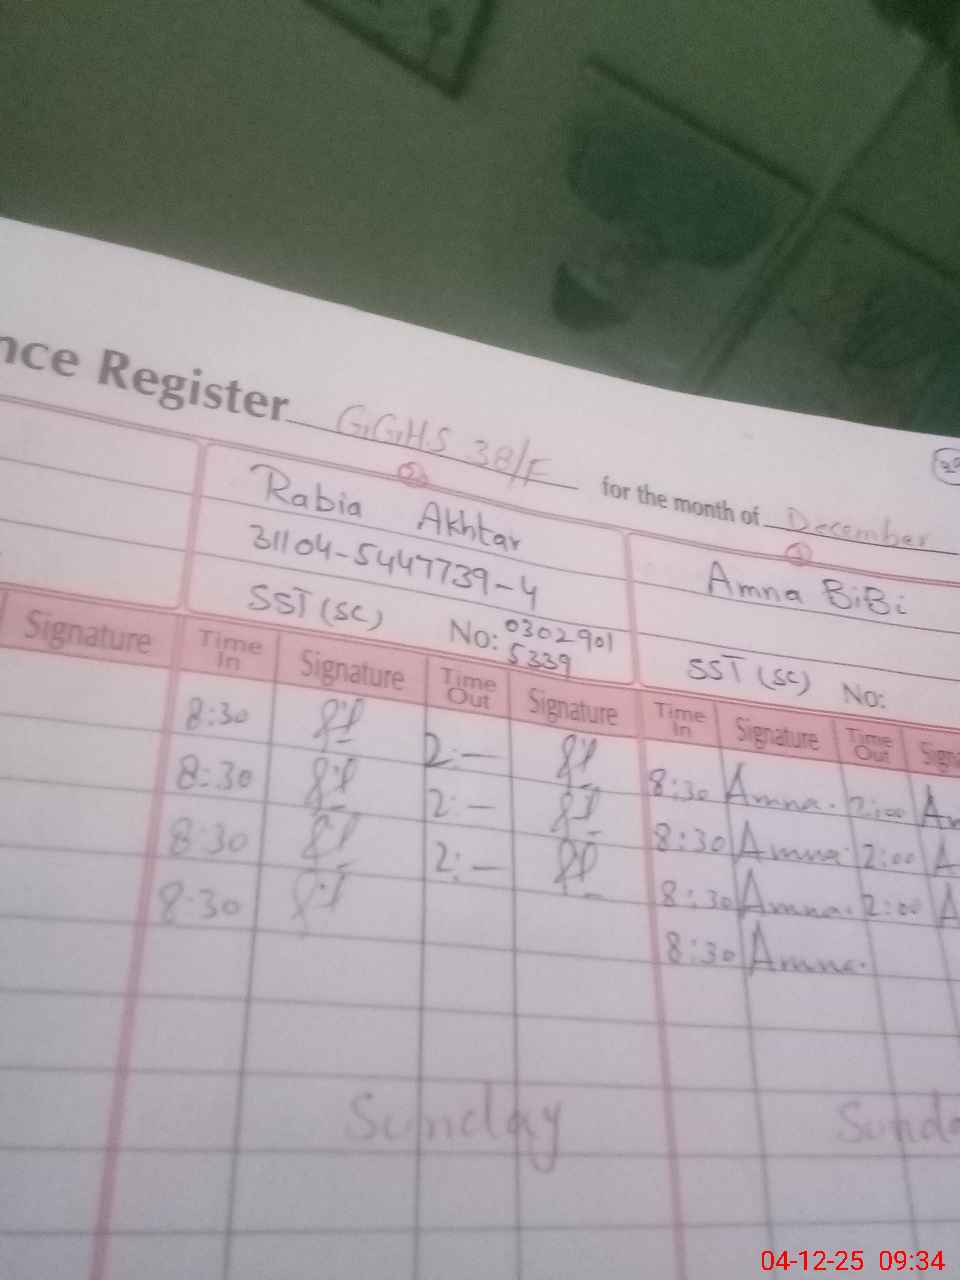 nce Register GGHS 38/F for the month of December
② ③
Rabia Akhtar Amna BiBi
31104-5447739-4
SST (SC) No: 0302901 SST (SC) No:
5339
Signature Time In Signature Time Out Signature Time In Signature Time Out Signa
8:30 2:— 8:30 Amna. 2:00 Am
8:30 2:— 8:30 Amna. 2:00 A
8:30 2:— 8:30 Amna. 2:00 A
8:30 8:30 Amna.
Sunday Sunda
04-12-25 09:34